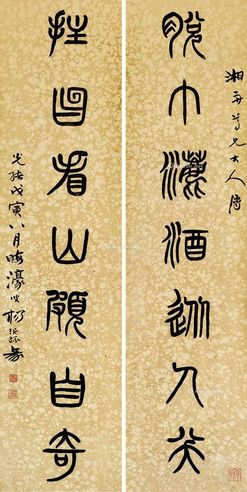 湘舟尊兄大人属
脱巾漉酒從人笑
拄笏看山頗自奇
光緒戊寅八月晦濠叟楊沂孫